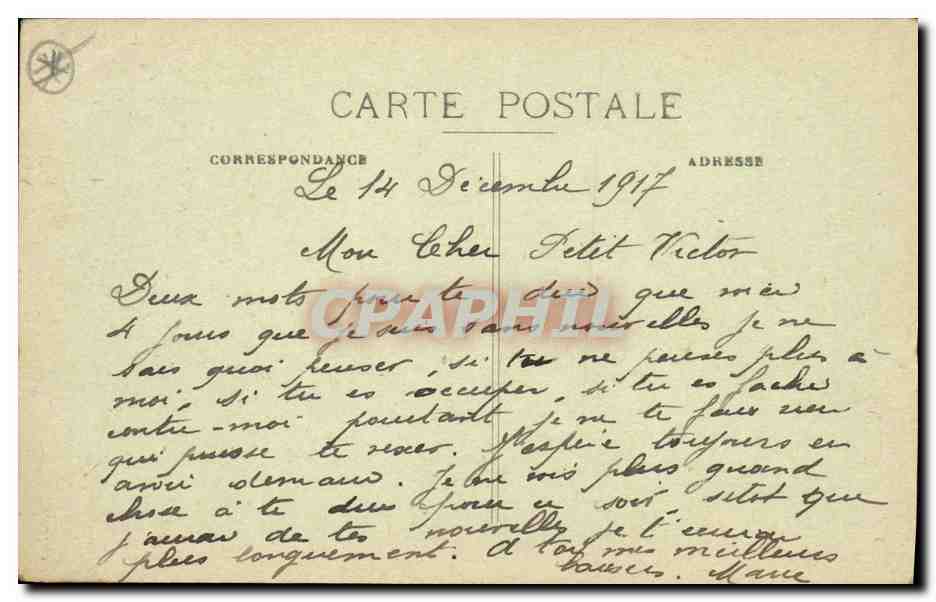 CARTE POSTALE
CORRESPONDANCE
ADRESSE
Le 14 Décembre 1917
Mon Cher Petit Victor
Deux mots pour te dire que
4 jours que je suis sans nouvelles je ne
sais quoi penser, si tu ne penses plus à
moi, si tu es occuper, si tu es faché
contre-moi pourtant je ne te fais rien
qui puisse te vexer. J'espère toujours en
avoir demain. Je ne vois plus quand
chose à te dire pour ce soir, sitot que
j'aurai de tes nouvelles je t'
plus longuement. A toi mes meilleurs
baisers. Marie
CPAPHIL